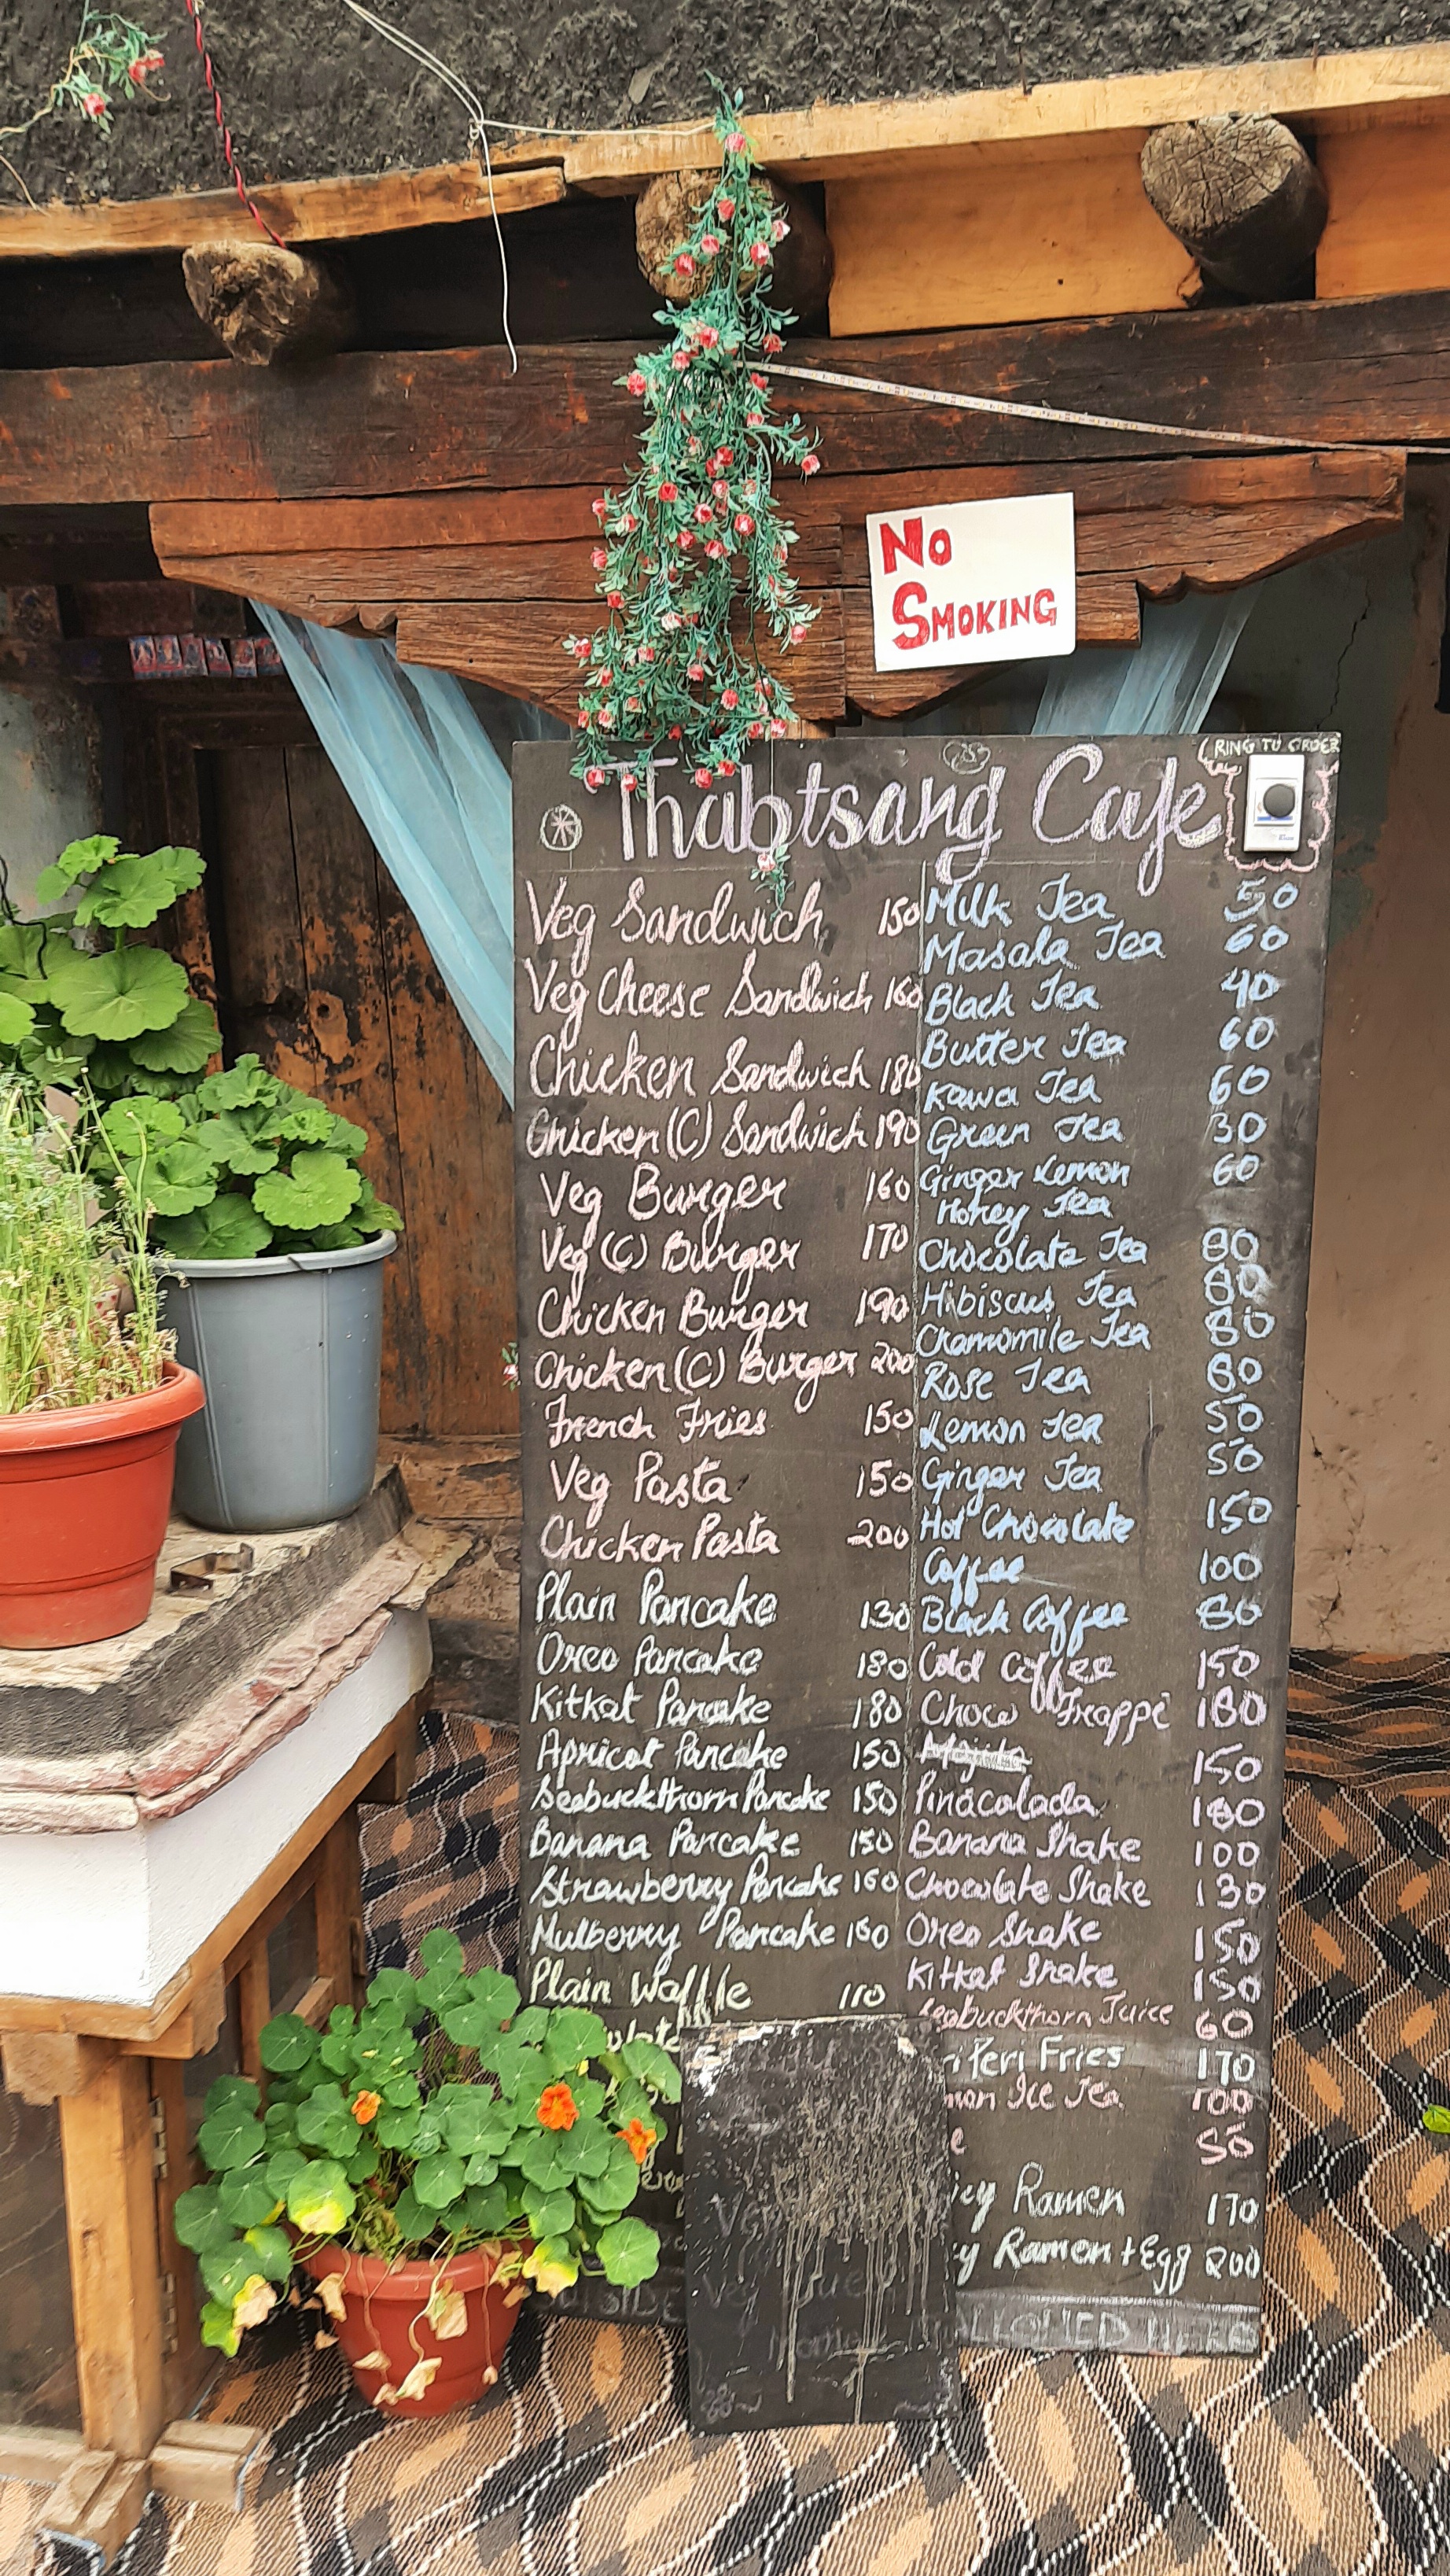 No
Smoking
RING TO ORDER
Thabtsang Cafe
Veg Sandwich 150
Veg Cheese Sandwich 160
Chicken Sandwich 180
Chicken (C) Sandwich 190
Veg Burger 160
Veg (C) Burger 170
Chicken Burger 190
Chicken (C) Burger 200
French Fries 150
Veg Pasta 150
Chicken Pasta 200
Plain Pancake 130
Oreo Pancake 180
Kitkat Pancake 180
Apricot Pancake 150
Seabuckthorn Pancake 150
Banana Pancake 150
Strawberry Pancake 160
Mulberry Pancake
Plain Waffle 110
Milk Tea 50
Masala Tea 60
Black Tea 40
Butter Tea 60
Kawa Tea 60
Green Tea 30
Ginger Lemon 60
Honey Tea
Chocolate Tea 80
Hibiscus Tea 80
Chamomile Tea 80
Rose Tea 80
Lemon Tea 50
Ginger Tea 50
Hot Chocolate 150
Coffee 100
Black Coffee 80
Cold Coffee 150
Choco Frappé 180
Mojito 150
Pinacolada 180
Banana Shake 100
Chocolate Shake 130
Oreo Shake 150
Kitkat Shake 150
Seabuckthorn Juice 60
Peri Fries 170
Ice Tea 100
50
Ramen 170
Ramen + Egg 200